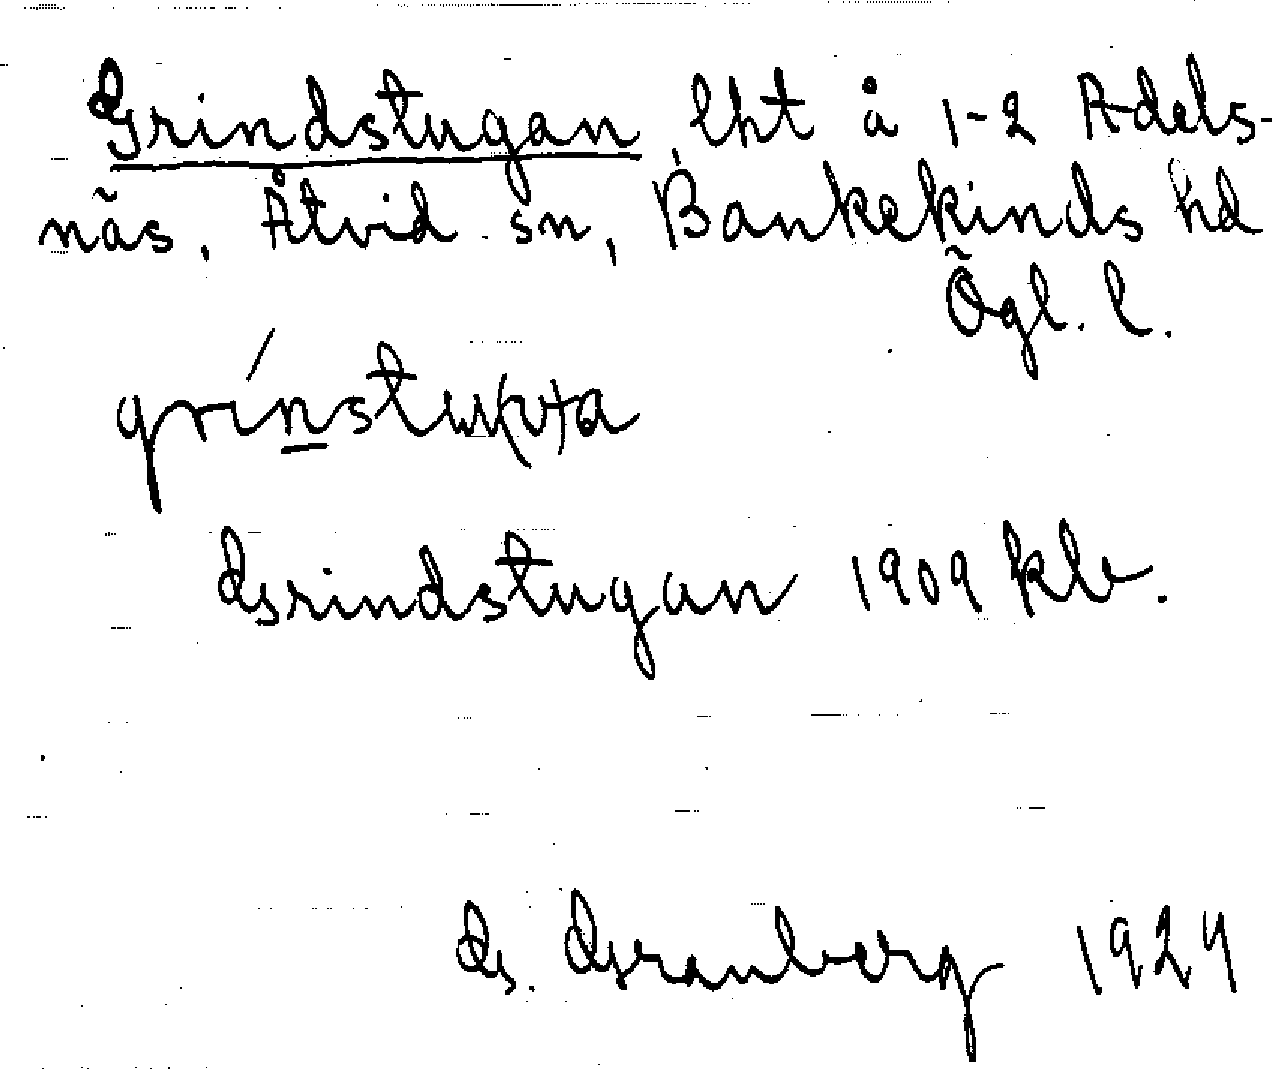 Grindstugan, lht å 1-2 Adels-
näs, Åtvid. sn, Bankekinds hd
Ögl. l.
Grindstugan 1909 kb.
G. Granberg 1929